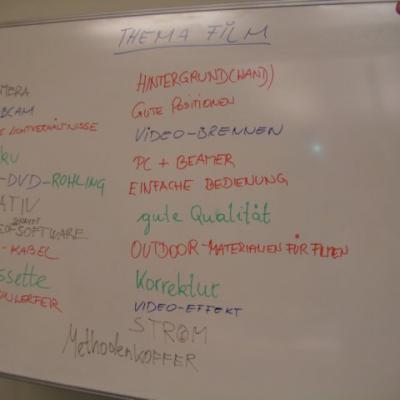 THEMA FILM
LICHTVERHÄLTNISSE
-DVD-ROHLING
SOFTWARE
-KABEL
HINTERGRUND(WAND))
GUTE POSITIONEN
VIDEO-BRENNEN
PC + BEAMER
EINFACHE BEDIENUNG
gute Qualität
OUTDOOR-MATERIALIEN FÜR FILMEN
Korrektur
VIDEO-EFFEKT
STROM
MethodenKOFFER